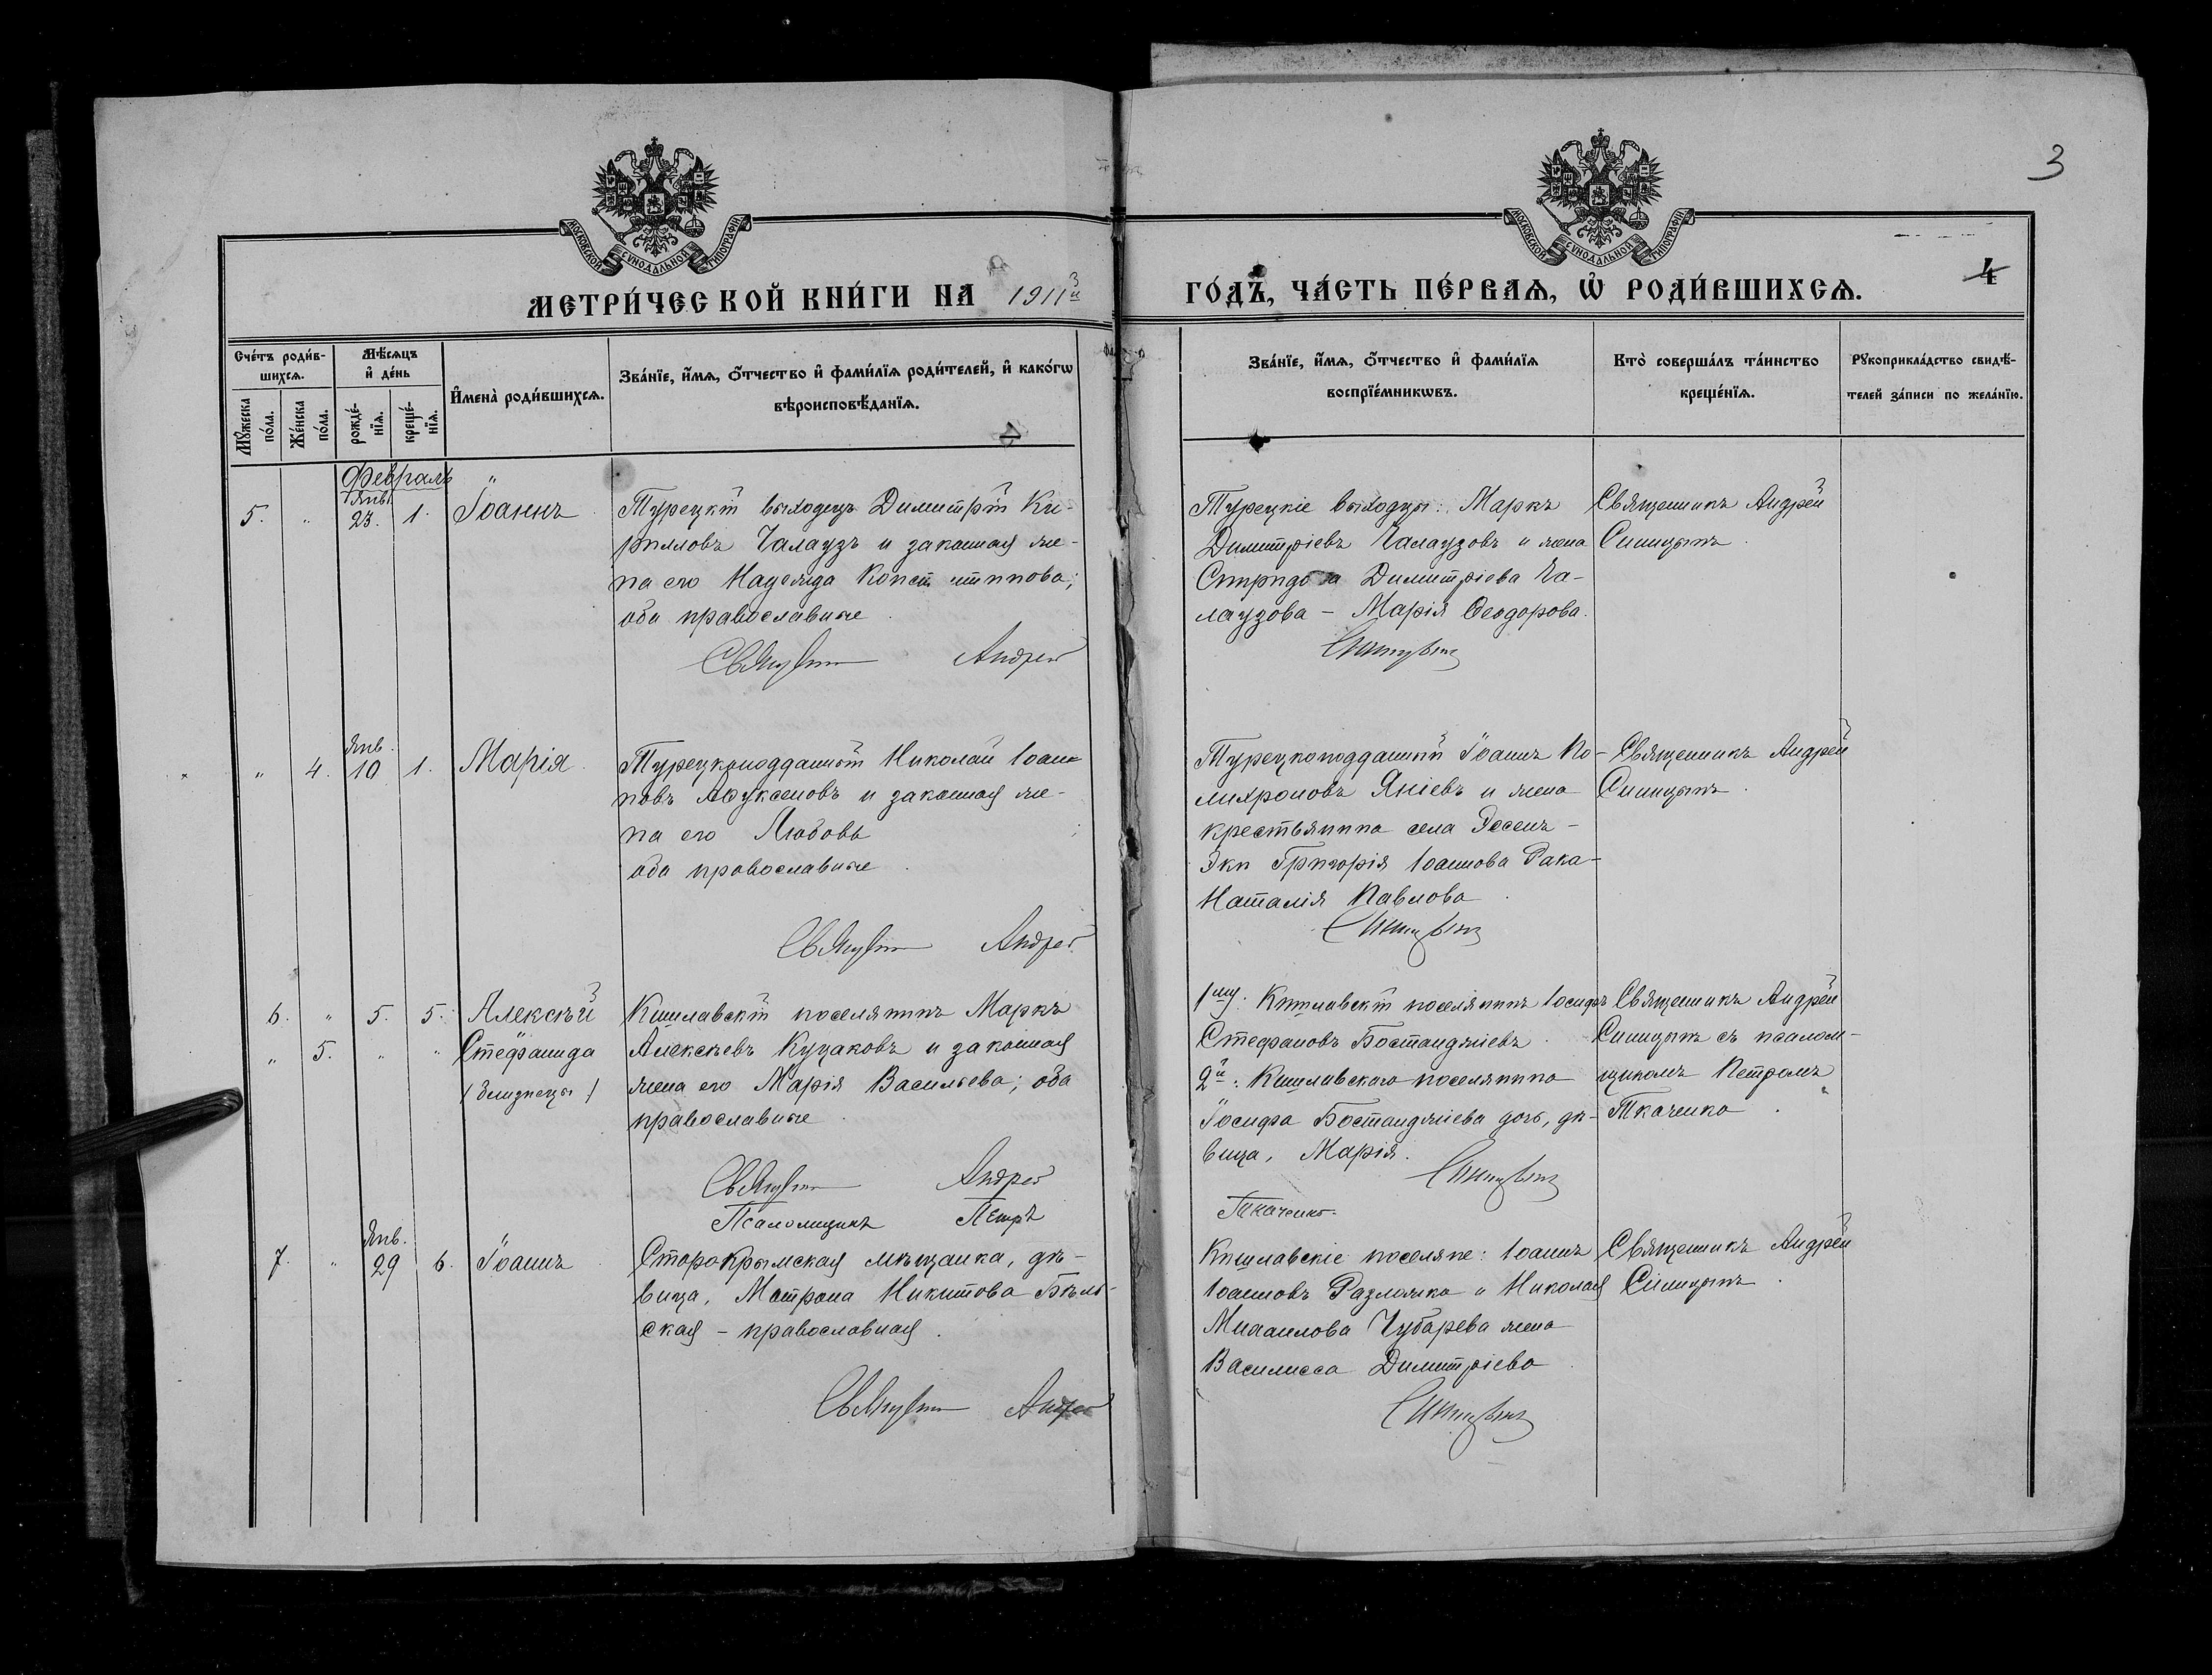 3
МОСКОВСКОЙ СѴНОДАЛЬНОЙ ТИПОГРАФІИ
МОСКОВСКОЙ СѴНОДАЛЬНОЙ ТИПОГРАФІИ
МЕТРИ́ЧЕСКОЙ КНИ́ГИ НА 1911й
ГО́ДЪ, ЧА́СТЬ ПЕ́РВАѦ, Ѡ҆ РОДИ́ВШИХСѦ.
4
Сче́тъ роди́в-
шихсѧ.
Мꙋ́жеска по́ла.
Же́нска по́ла.
Мѣ́сѧцъ
и҆ де́нь
рожде́-
нїѧ.
креще́-
нїѧ.
И҆мена̀ роди́вшихсѧ.
Зва́нїе, и҆́мѧ, ѻ҆́тчество и҆ фами́лїѧ роди́телей, и҆ како́гѡ
вѣроисповѣ́данїѧ.
Зва́нїе, и҆́мѧ, ѻ҆́тчество и҆ фами́лїѧ
воспрїе́мникѡвъ.
Кто̀ соверша́лъ та́инство
креще́нїѧ.
Рꙋкоприкла́дство свидѣ́-
телей за́писи по жела́нїю.
Февраль
Янв.
5. " 23. 1. Іоаннъ
Турецкій выходецъ Димитрій Ки-
рилловъ Чалаузъ и законная же-
на его Надежда Константинова;
оба православные
Священникъ Андрей
Турецкіе выходцы: Маркъ
Димитріевъ Чалаузовъ и жена
Спиридона Димитріева Ча-
лаузова – Марія Ѳеодорова.
Синицынъ
Священникъ Андрей
Синицынъ.
Янв.
" 4. 10 1. Марія
Турецкоподданный Николай Іоан-
новъ и законная же-
на его Любовь
оба православные.
Священникъ Андрей
Турецкоподданный Іоаннъ По-
лихроновъ Яніевъ и жена
крестьянина села Розен-
Григорія Іоаннова Рака-
Наталія Павлова.
Синицынъ
Священникъ Андрей
Синицынъ.
6. " 5. 5. Алексѣй
" 5. " " Стефанида
(близнецы)
Кишлавскій поселянинъ Маркъ
Алексѣевъ Куцаковъ и законная
жена его Марія Васильева; оба
православные.
Священникъ Андрей
Псаломщикъ Петръ
1му. Кишлавскій поселянинъ Іосифъ
Стефановъ Бостанджіевъ.
2й: Кишлавскаго поселянина
Іосифа Бостанджіева дочь, дѣ-
вица, Марія.
Синицынъ
Ткаченко.
Священникъ Андрей
Синицынъ съ псалом-
щикомъ Петромъ
Ткаченко.
Янв.
7. " 29 6. Іоаннъ
Старокрымская мѣщанка, дѣ-
вица, Матрона Никитова Бѣль-
ская – православная.
Священникъ Андрей
Кишлавскіе поселяне: Іоаннъ
Іоанновъ Разложко и Николая
Михаилова Чубарева жена
Василисса Димитріева.
Синицынъ
Священникъ Андрей
Синицынъ.